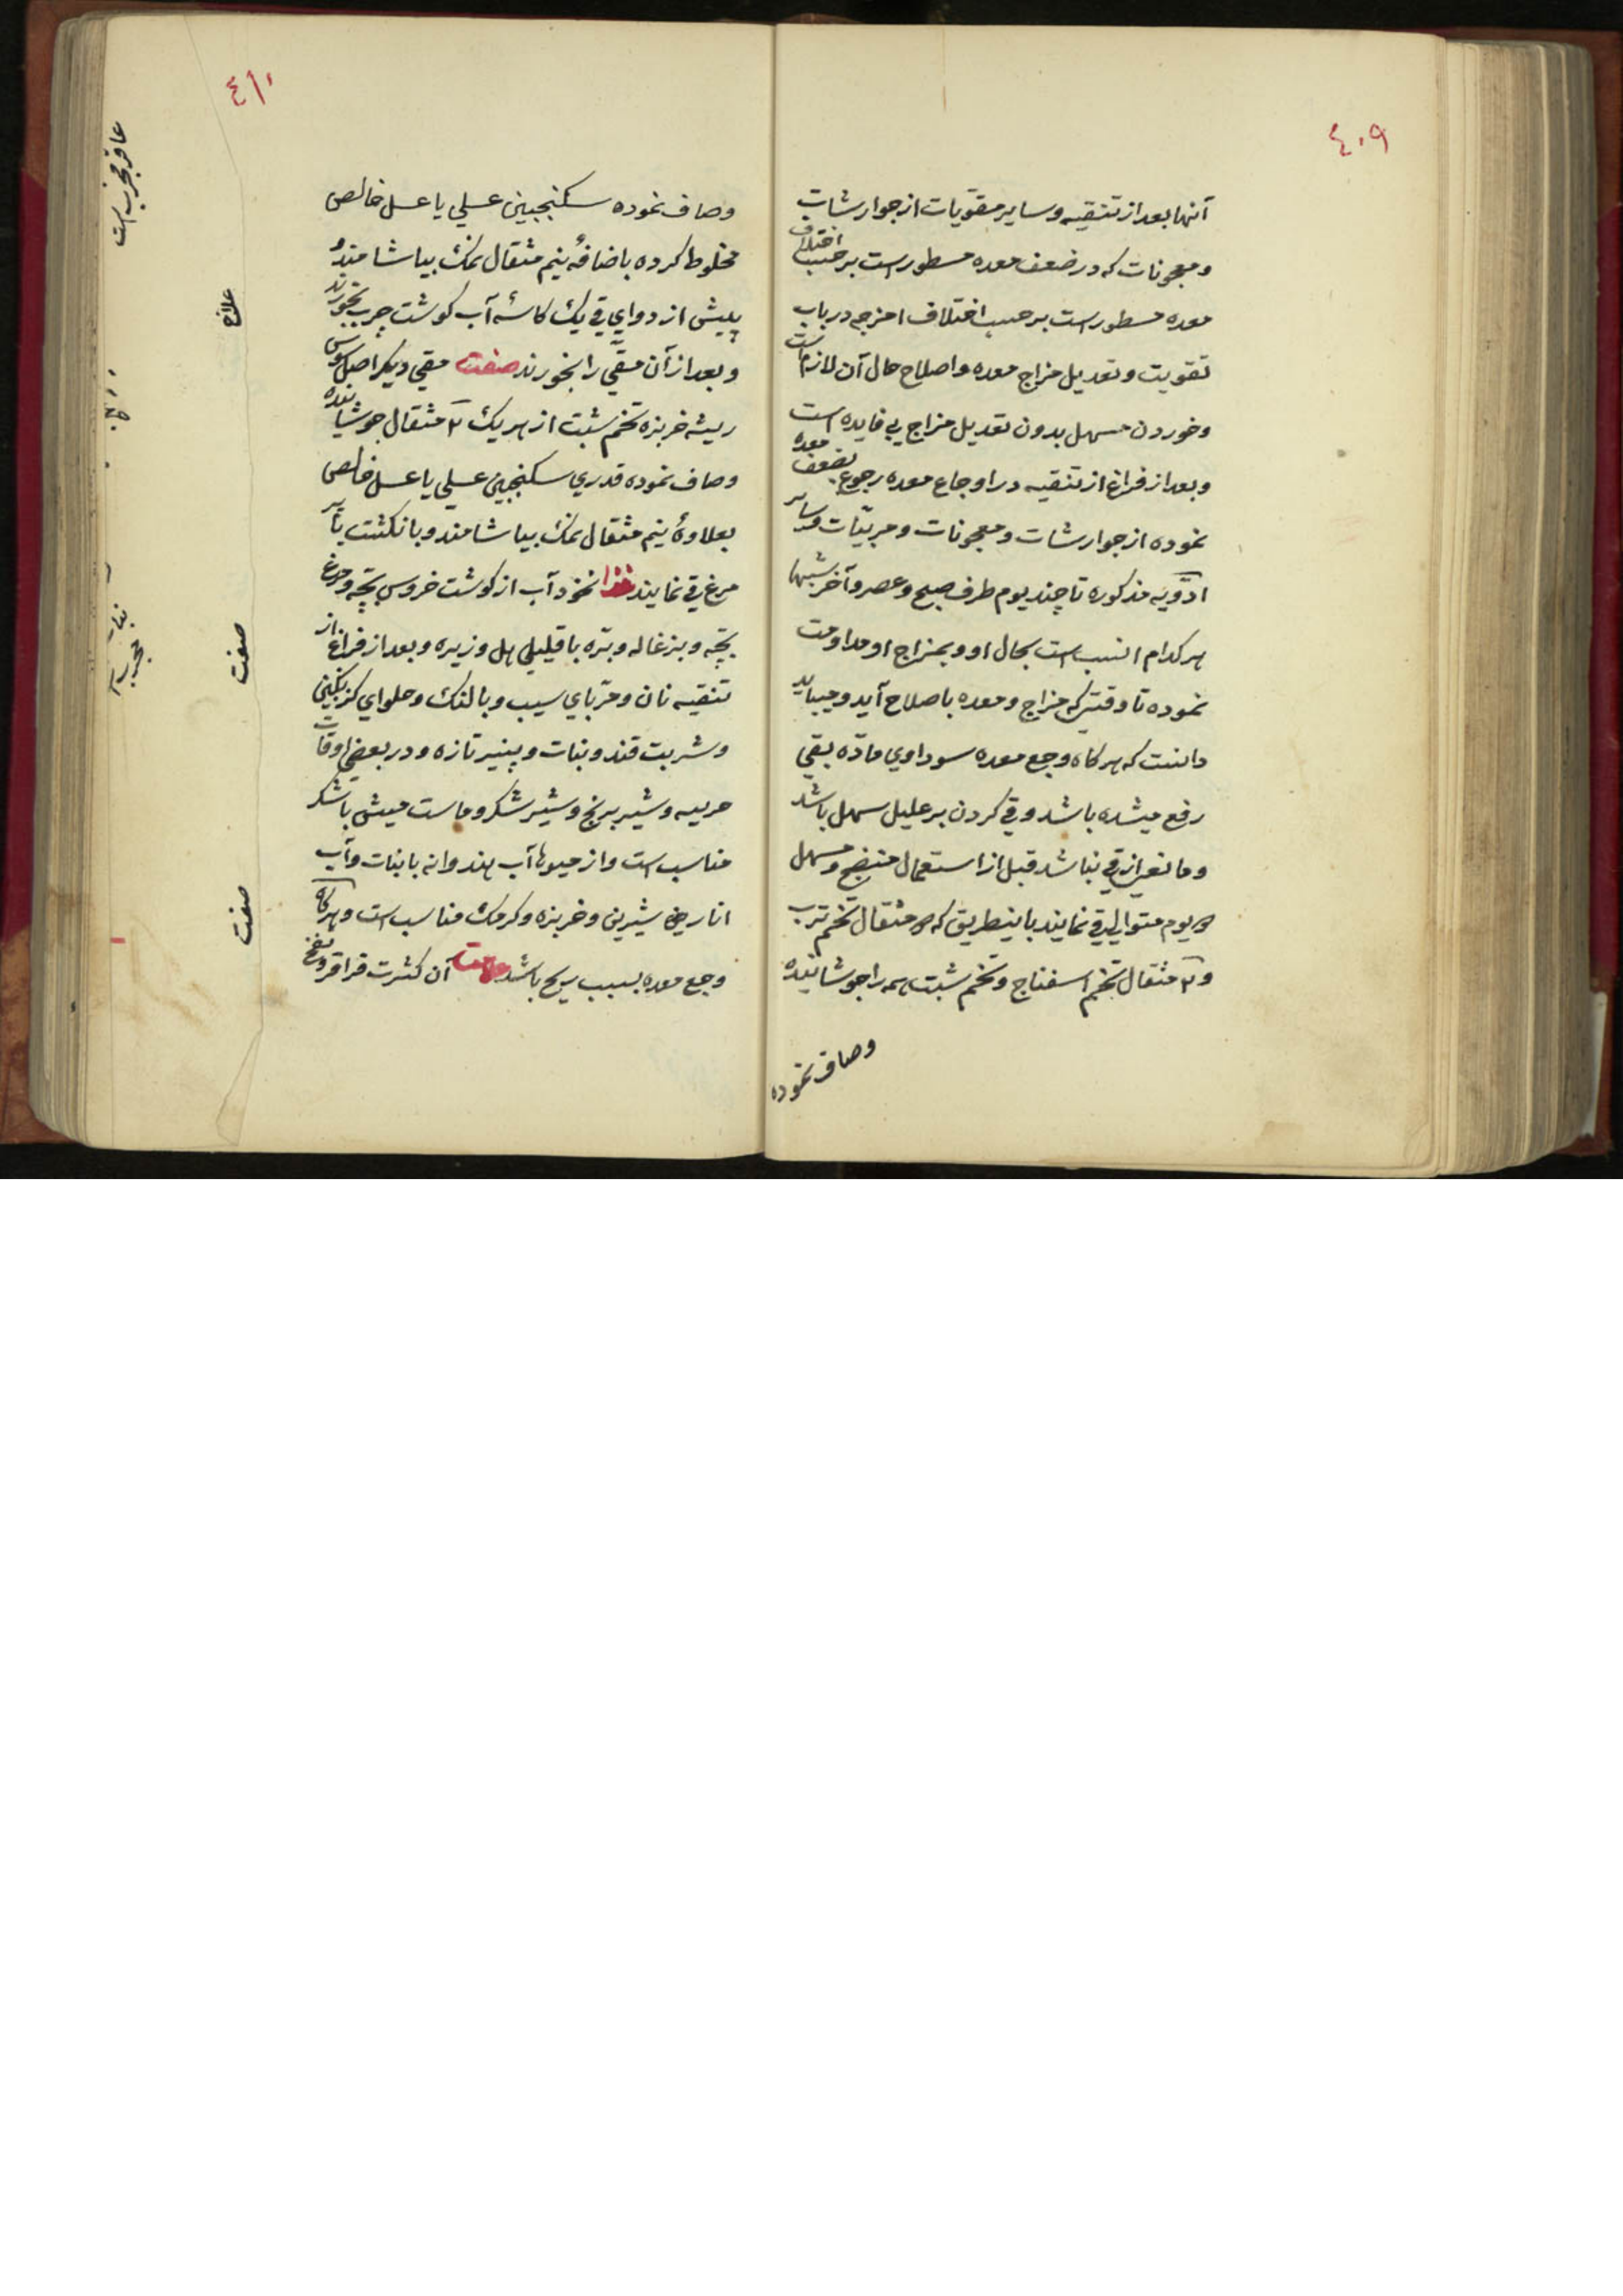 ٤٠٩
آنها بعد از تنقیه و سایر مقویات از جوارشات
و معجونات که در ضعف معده مسطور است بر حسب اختلاف
معده مسطور است بر حسب اختلاف امزجه در باب
تقویت و تعدیل مزاج معده و اصلاح حال آن لازم است
و خوردن مسهل بدون تعدیل مزاج بی فایده است
و بعد از فراغ از تنقیه در اوجاع معده رجوع بضعف معده
نموده از جوارشات و معجونات و مربّیات و سایر
ادویه مذکوره تا چند یوم طرف صبح و عصر و آخر شبها
هر کدام انسب است بحال او و بمزاج او مداومت
نموده تا وقتی که مزاج و معده باصلاح آید و میباید
دانست که هر کاه وجع معده سوداوی مادّه بقی
رفع میشده باشد و قی کردن بر علیل سهل باشد
و مانعی از قی نباشد قبل از استعمال منضج و مسهل
یوم متوالی قی نمایند باینطریق که مثقال تخم ترب
و ۲ مثقال تخم اسفناج و تخم شبت همه را جوشانیده
وصاف نموده
٤١٠
وصاف نموده سکنجبین عسلی یا عسل خالص
مخلوط کرده باضافهٔ نیم مثقال نمک بیاشامند و
پیش از دوای قی یک کاسهٔ آب کوشت چرب بخورند
و بعد از آن مقّی را بخورند صنعت مقی دیکر اصل سوس
ریشه خربزه تخم شبت از هر یک ۲ مثقال جوشانیده
وصاف نموده قدری سکنجبین عسلی یا عسل خالص
بعلاوهٔ نیم مثقال نمک بیاشامند و بانکشت یا پر
مرغ قی نمایند غذا نخود آب از کوشت خروس بچّه و مرغ
بچّه و بزغاله و برّه با قلیلی هل و زیره و بعد از فراغ از
تنقیه نان و مربّای سیب و بالنک و حلوای کزنکبین
و شربت قند و نبات و پنیر تازه و در بعضی اوقات
حریره و شیر برنج و شیر شکر و ماست میش با شکر
مناسب است و از میوها آب هندوانه با نبات و آب
انار شیرین و خربزه و کرمک مناسب است و هر کاه
وجع معده بسبب ریح باشد علامت آن کثرت قراقر و نفخ
علاج
صفت
صفت
مجرب است